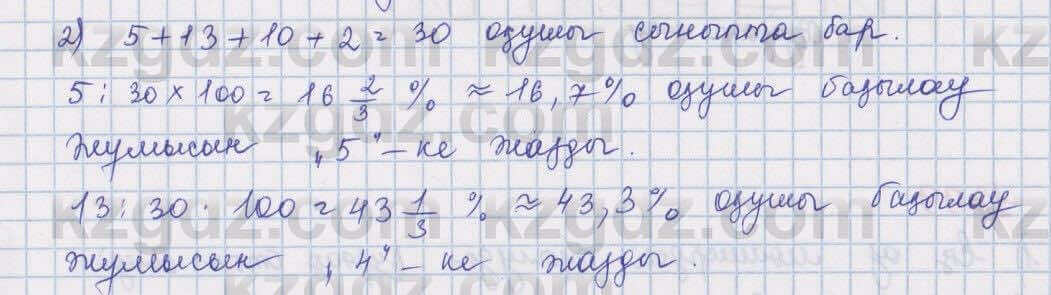 2) 5 + 13 + 10 + 2 = 30 оқушы сыныпта бар.
5 : 30 × 100 = 16 2/3 % ≈ 16,7% оқушы бақылау
жұмысын „5"-ке жазды.
13 : 30 · 100 = 43 1/3 % ≈ 43,3% оқушы бақылау
жұмысын „4"-ке жазды.